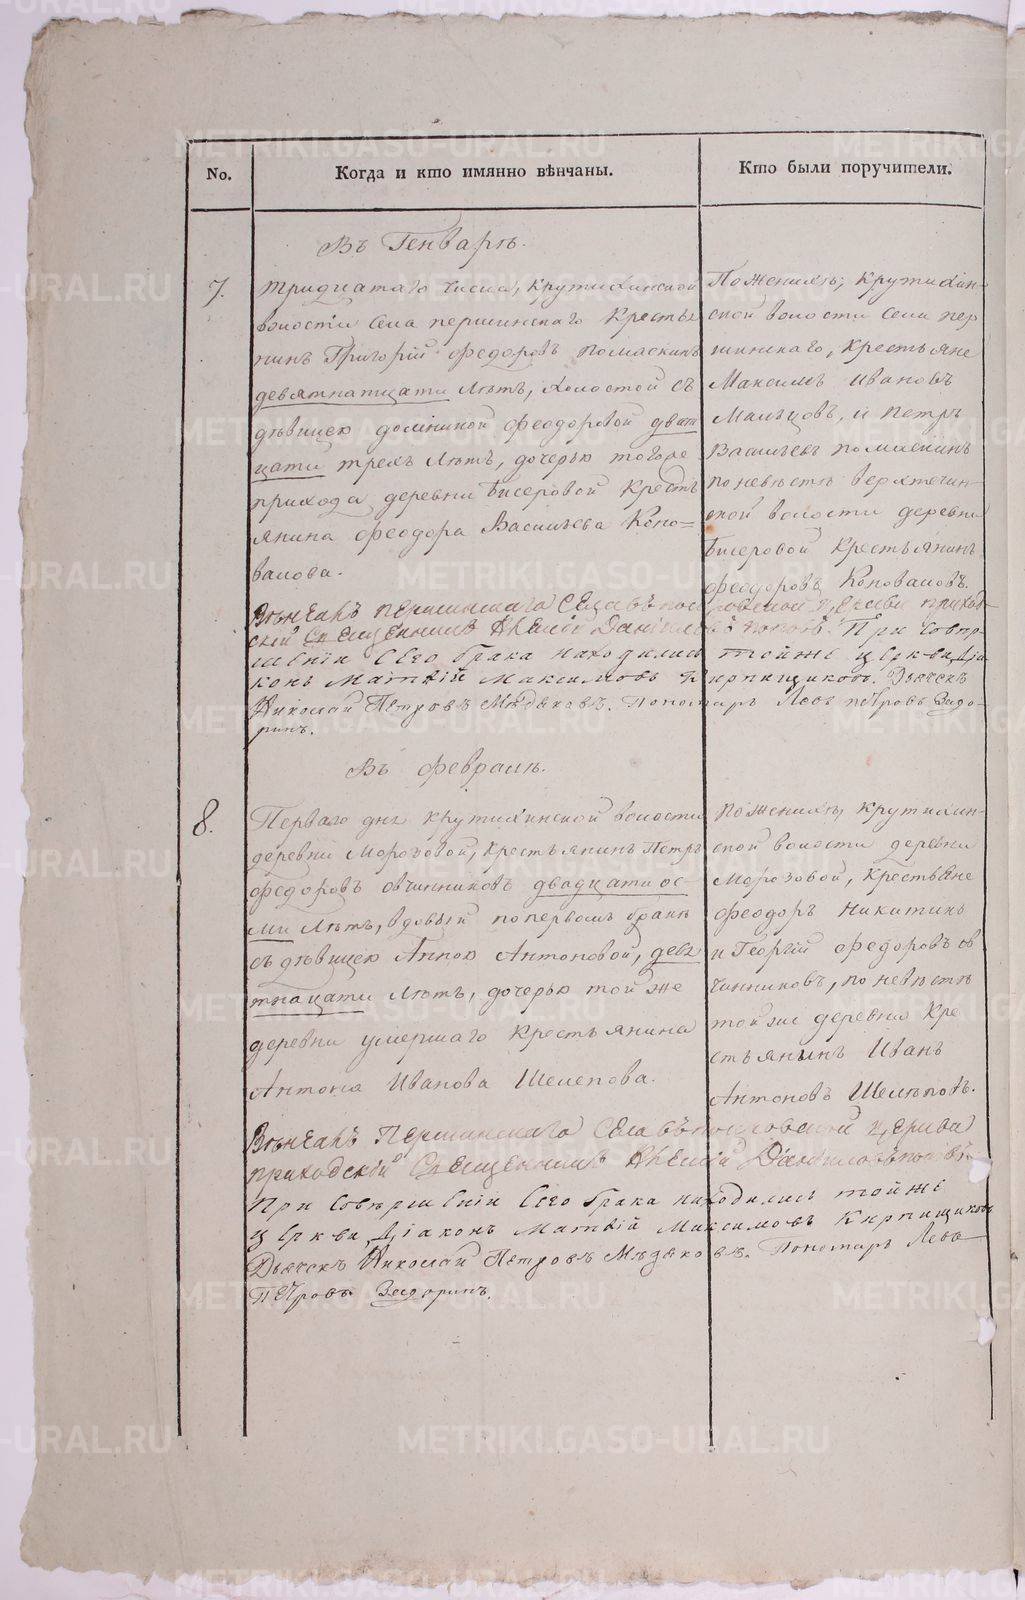 No.
Когда и кто имянно вѣнчаны.
Кто были поручители.
Въ Генварѣ.
7.
тридцатаго числа, Крутихинской
волости села першинскаго Крестья
нинъ Григорій Федоровъ Помаскинъ
девятнатцати лѣтъ, холостой съ
дѣвицею домникой Феодоровой дват
цати трехъ лѣтъ, дочерью тогоже
прихода деревни Бисеровой Кресть
янина Феодора Васильева Коно=
валова.
По женихѣ; Крутихин-
ской волости села пер
шинскаго, крестьяне
Максимъ Ивановъ
Мальцовъ, и Петръ
Васильевъ помаскинъ
по невѣстѣ верхтечин-
ской волости деревни
Бисеровой Крестьянинъ
Феодоровъ Коноваловъ.
Вѣнчалъ першинскаго Села въ покровской Церкви приход-
ской Священникъ Алексій Даніиловъ поповъ. При совер-
шеніи Сего брака находились тойже церкви Діа
конъ Матвій Максимовъ Кирпищиковъ. Дьячекъ
Николай Петровъ Мѣдяковъ. Пономарь Левъ петровъ Задо-
ринъ.
Въ Февралѣ.
8.
Перваго дня крутихинской волости
деревни Морозовой, крестьянинъ Петръ
Федоровъ овчинниковъ двадцати ос
ми лѣтъ, вдовый по первомъ бракѣ
съ дѣвицею Анною Антоновой, девя
тнацати лѣтъ, дочерью той же
деревни умершаго Крестьянина
Антона Иванова Шелепова.
По женихѣ, крутихин-
ской волости деревни
Морозовой, крестьяне
Феодоръ Никитинъ
и Георгій Федоровъ ов
чинниковъ, по невѣстѣ
той же деревни Кре
стьянинъ Иванъ
Антоновъ Шелѣповъ.
Вѣнчалъ Першинскаго Села въ покровской Церкви
приходскій Священникъ Алексій Даніиловъ поповъ.
При Совершеніи Сего брака находились тойже
Церкви, Діаконъ Матвій Максимовъ Кирпищиковъ
Дьячекъ Николай Петровъ Мѣдяковъ. Пономарь Левъ
Петровъ Задоринъ.
METRIKI.GASO-URAL.RU